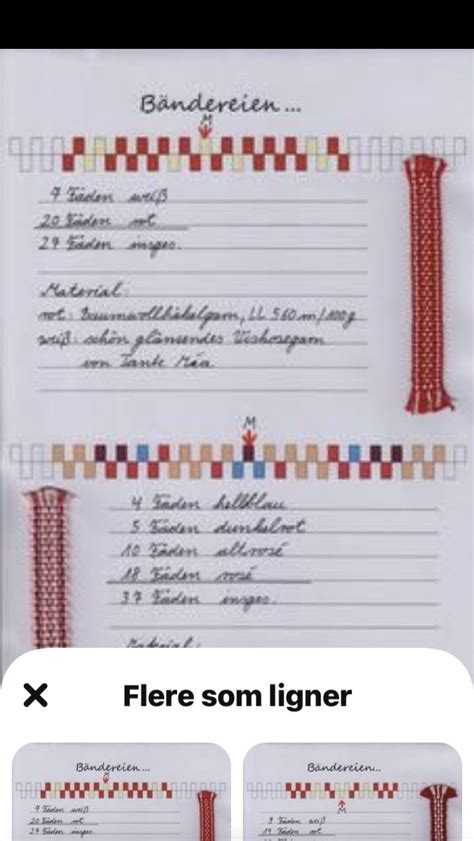 Bändereien...
M
9 Fäden weiß
20 Fäden rot
29 Fäden insges.
Material:
rot: Baumwollhäkelgarn, LL 560 m/100g
weiß: schön glänzendes Viskosegarn
von Tante Mía
M
4 Fäden hellblau
5 Fäden dunkelrot
10 Fäden altrosé
18 Fäden rosé
37 Fäden insges.
Material:
Flere som ligner
Bändereien...
M
9 Fäden weiß
20 Fäden rot
29 Fäden insges.
Bändereien...
M
Fäden weiß
Fäden rot